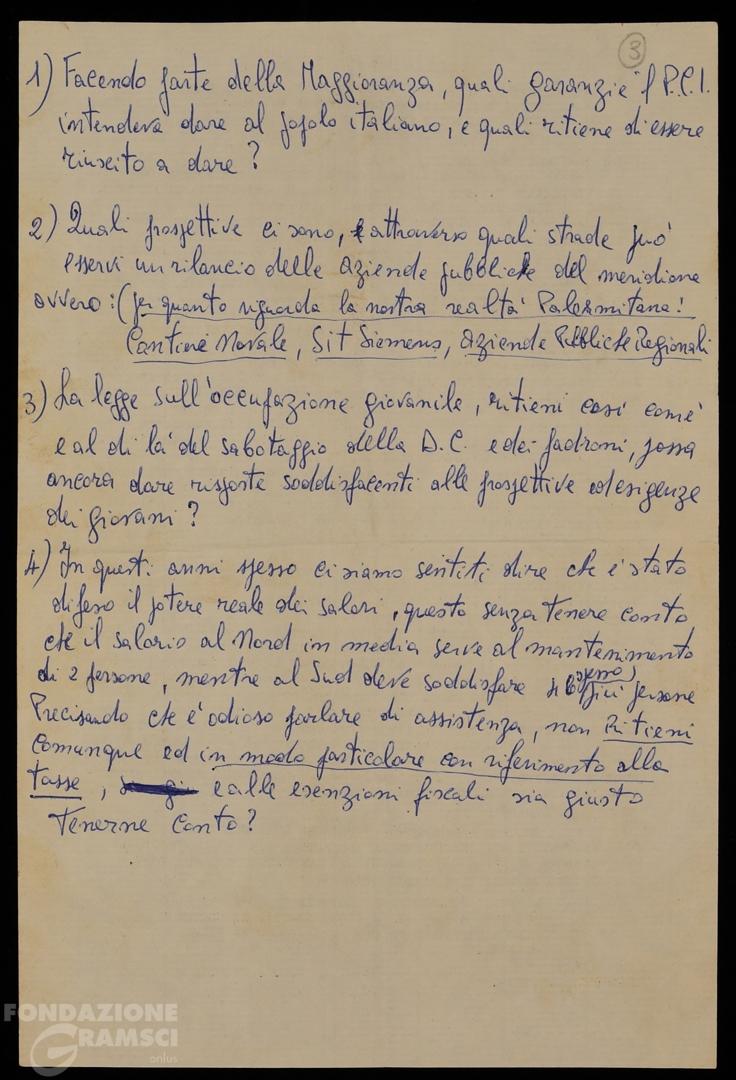 3
1) Facendo parte della Maggioranza, quali garanzie il P.C.I.
intendeva dare al popolo italiano, e quali ritiene di essere
riuscito a dare?
2) Quali prospettive ci sono, e attraverso quali strade può
esservi un rilancio delle aziende pubbliche del meridione
ovvero: (per quanto riguarda la nostra realtà Palermitana!
Cantieri Navale, Sit Siemens, aziende Pubbliche Regionali
3) La legge sull'occupazione giovanile, ritieni così com'è
e al di là del sabotaggio della D.C. e dei padroni, possa
ancora dare risposte soddisfacenti alle prospettive ed esigenze
dei giovani?
4) In questi anni spesso ci siamo sentiti dire che è stato
difeso il potere reale dei salari, questo senza tenere conto
che il salario al Nord in media serve al mantenimento
di 2 persone, mentre al Sud deve soddisfare spesso più persone
Precisando che è odioso parlare di assistenza, non Ritieni
comunque ed in modo particolare con riferimento alla
tasse, e alle esenzioni fiscali sia giusto
tenerne conto?
FONDAZIONE
GRAMSCI
onlus